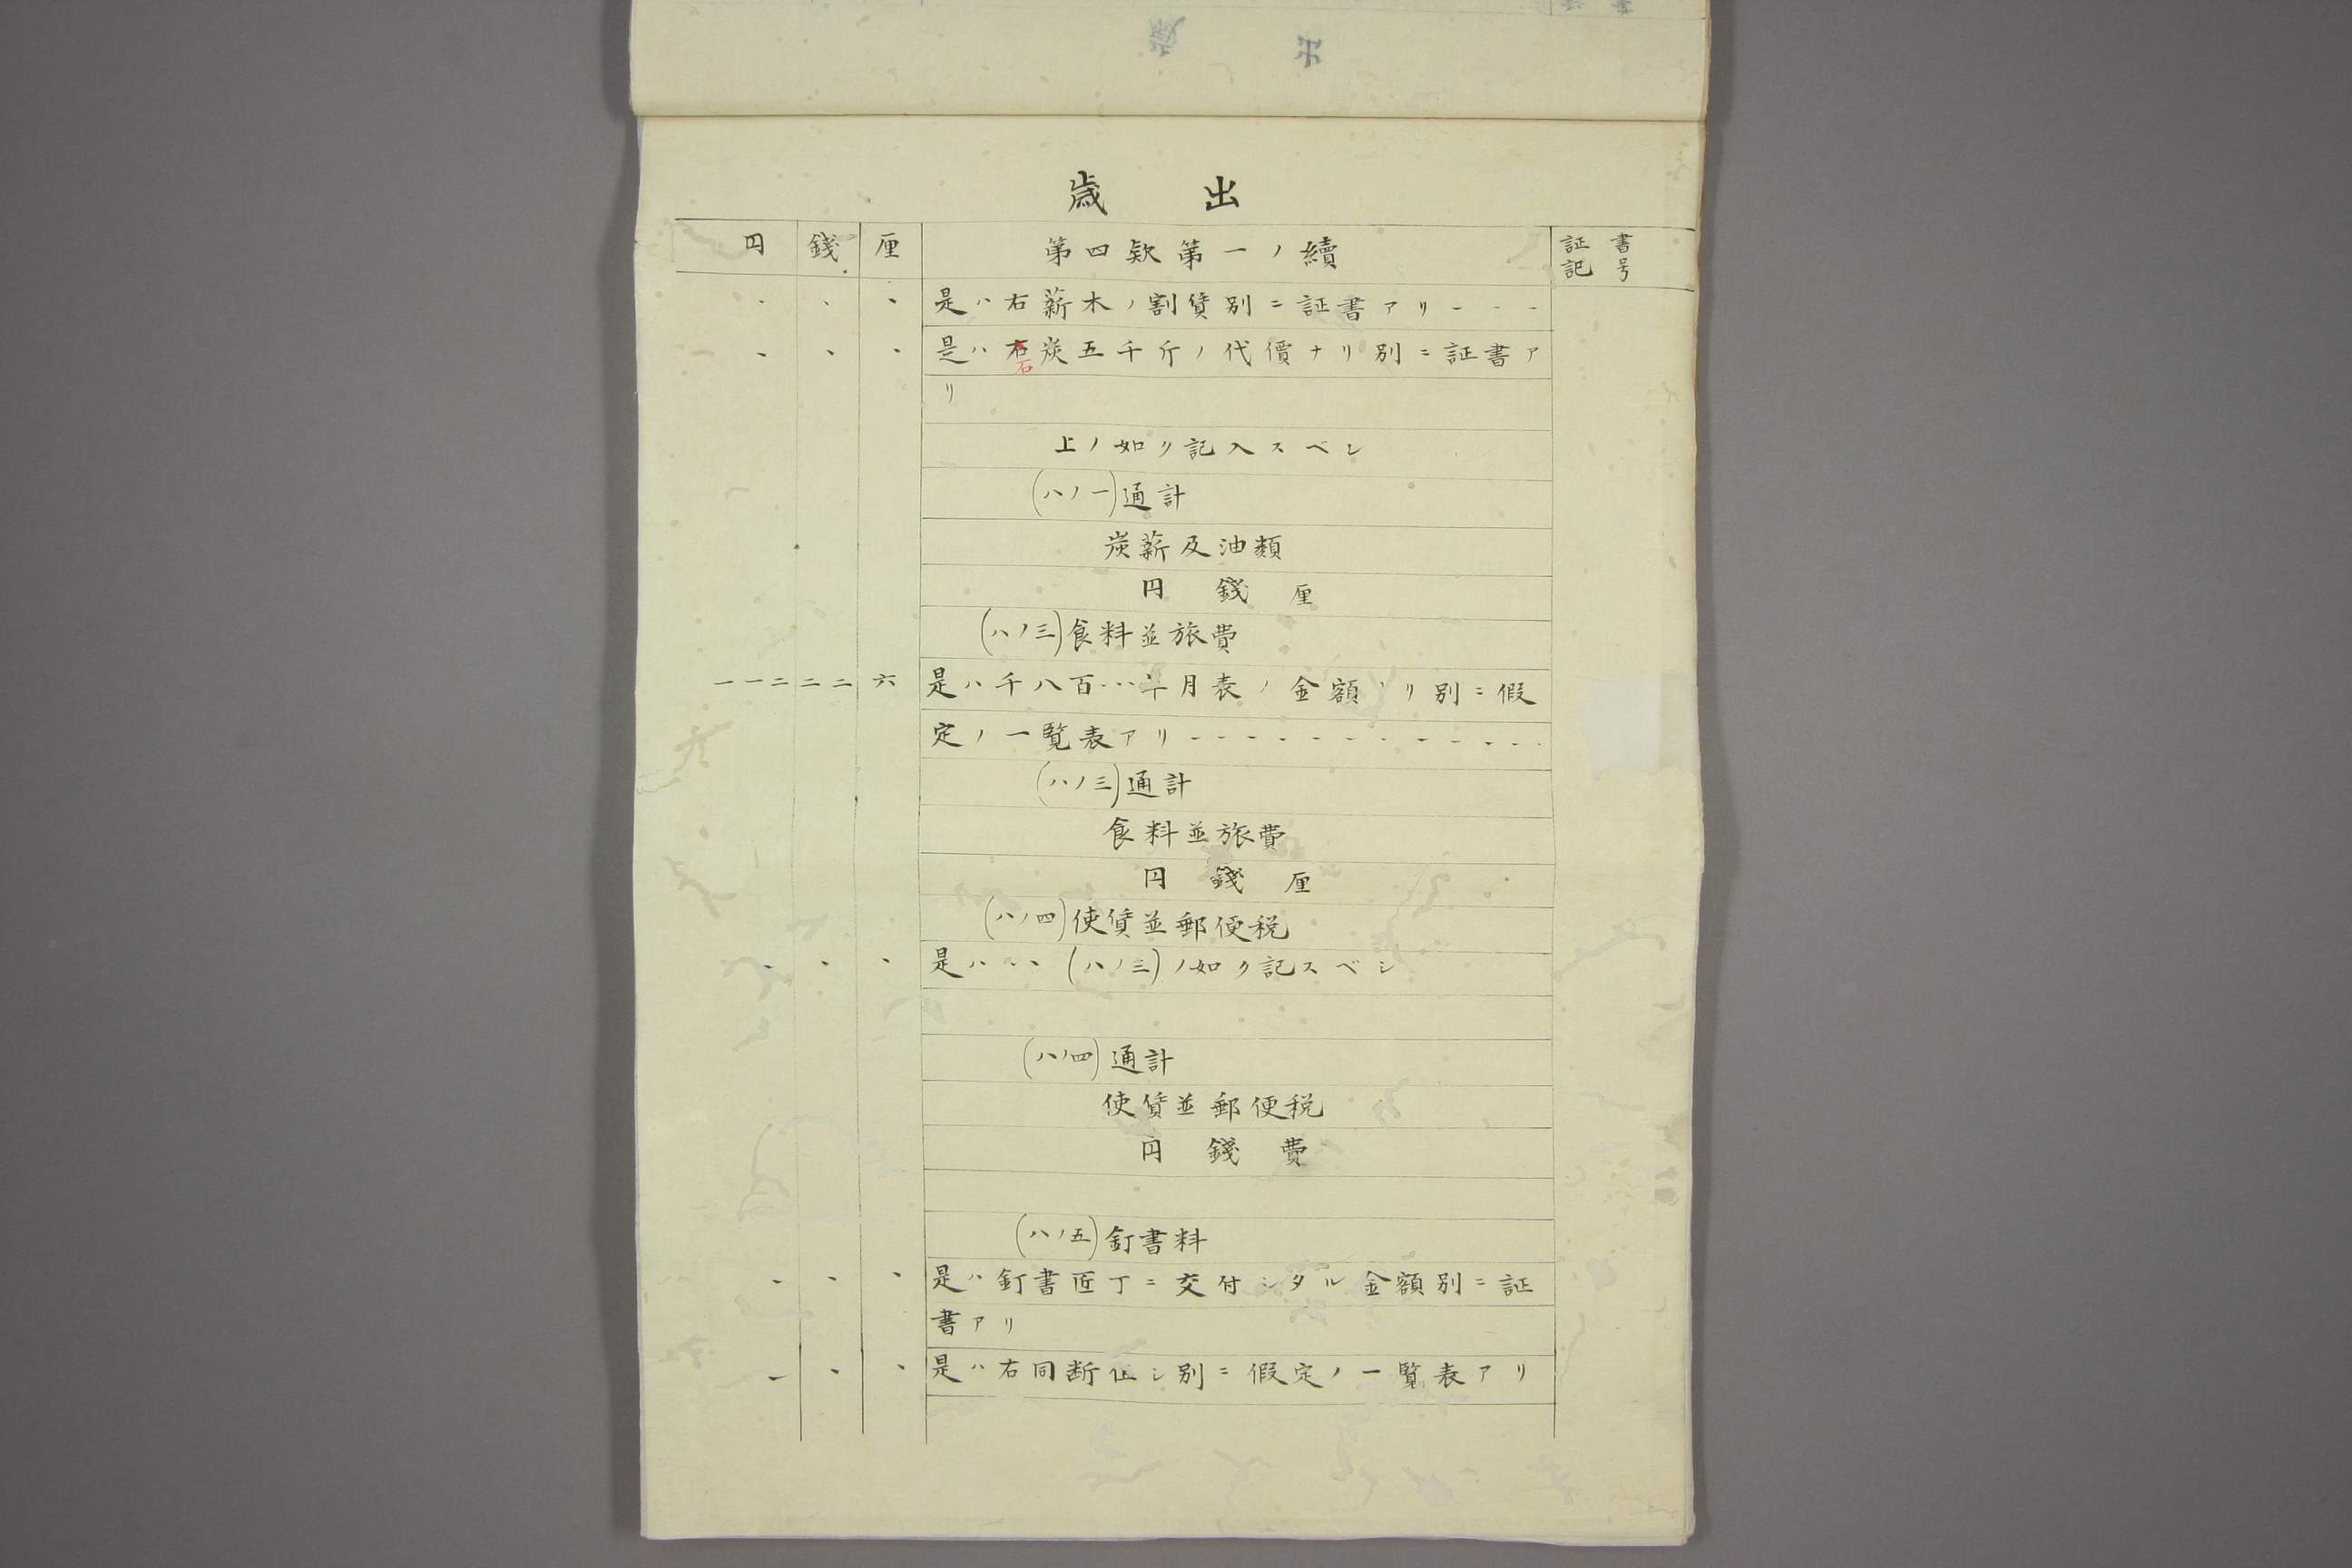 歳出
円 錢 厘 第四欵第一ノ續 証書
記号
、 、 、 是ハ右薪木ノ割賃別ニ証書アリ - - -
、 、 、 是ハ右炭五千斤ノ代價ナリ別ニ証書ア
石
リ
上ノ如ク記入スベシ
(八ノ一)通計
炭薪及油類
円 錢 厘
(八ノ三)食料並旅費
一一二 二二 六 是ハ千八百…年月表ノ金額ナリ別ニ假
定ノ一覧表アリ - - - - - - - - - - -
(八ノ三)通計
食料並旅費
円 錢 厘
(八ノ四)使賃並郵便税
、 、 、 是ハ、、(八ノ三)ノ如ク記スベシ
(八ノ四)通計
使賃並郵便税
円 錢 費
(八ノ五)釘書料
、 、 、 是ハ釘書匠丁ニ交付シタル金額別ニ証
書アリ
、 、 、 是ハ右同断但シ別ニ假定ノ一覧表アリ